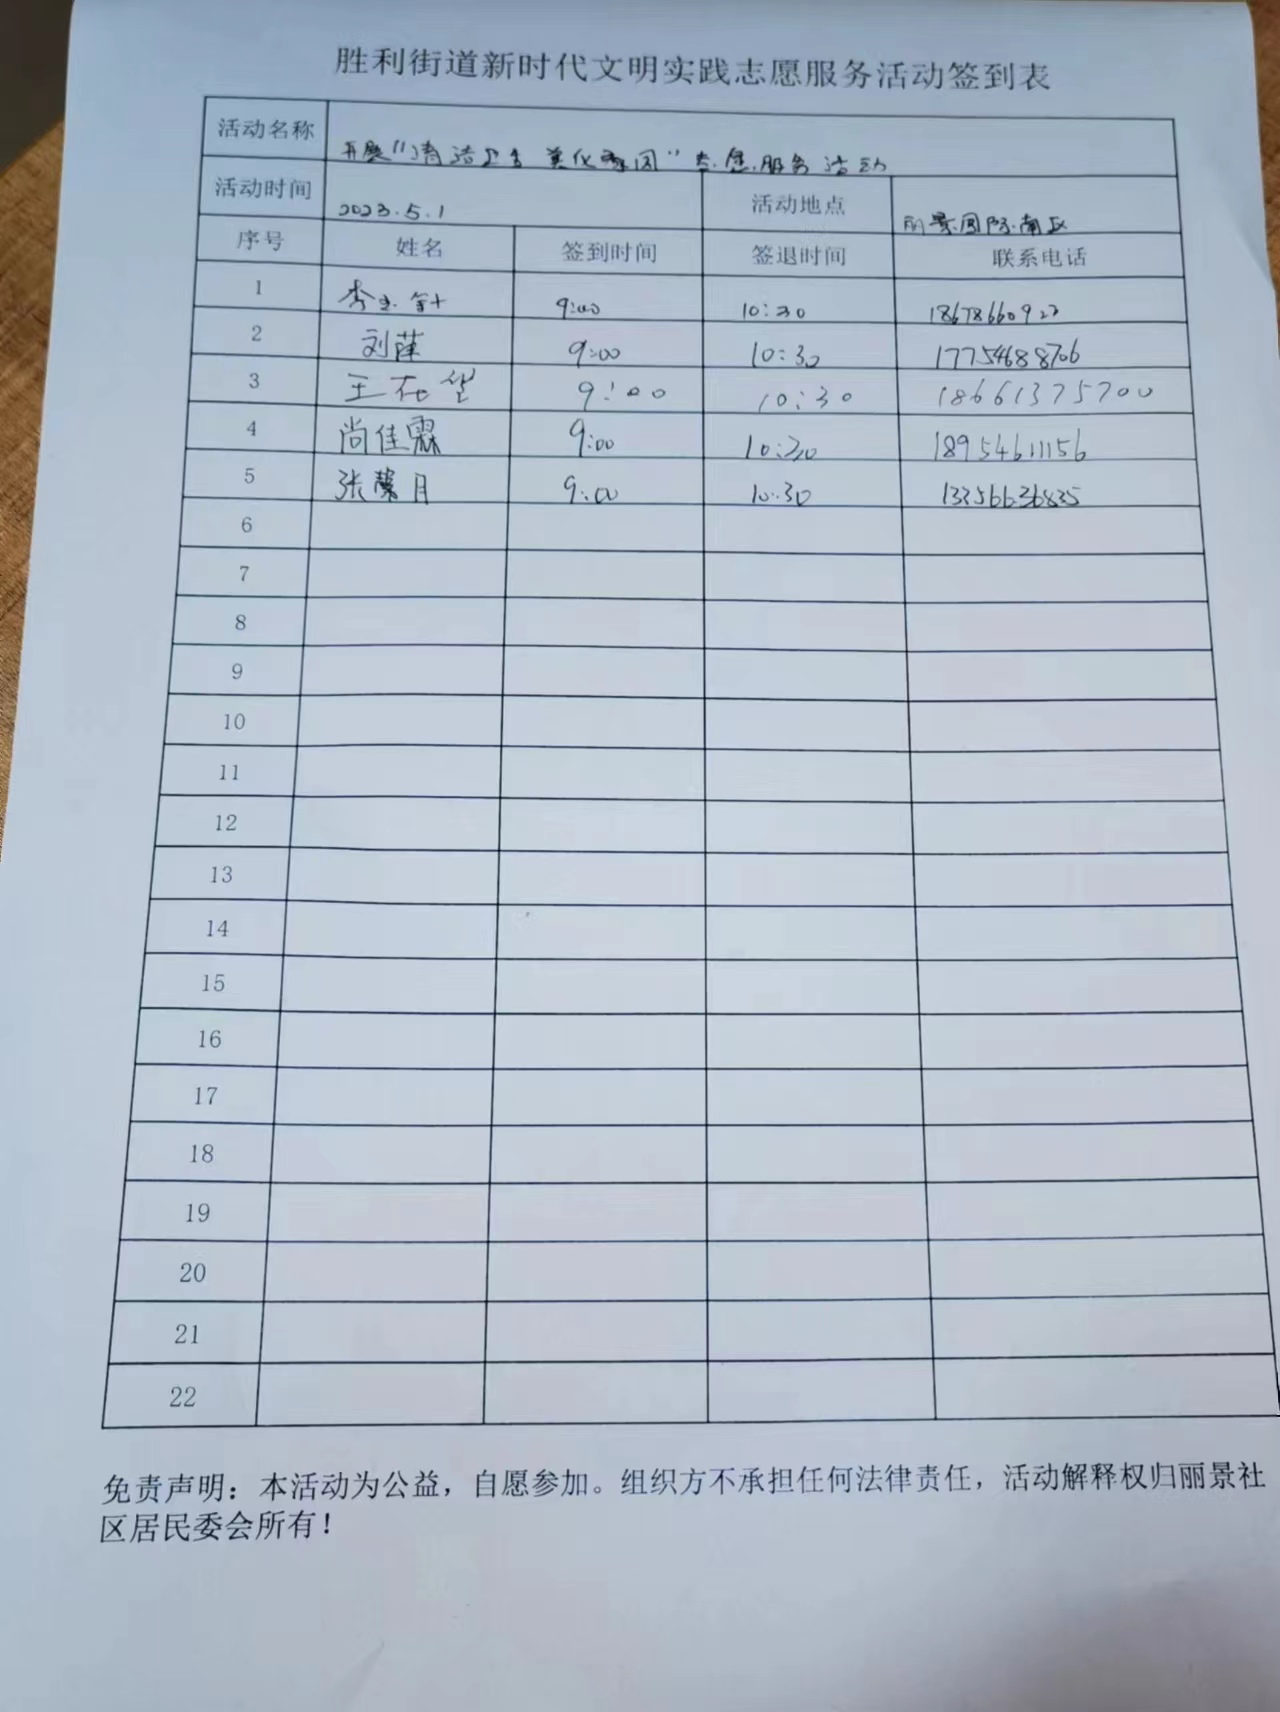 胜利街道新时代文明实践志愿服务活动签到表
活动名称 开展"清洁卫生 美化家园"志愿服务活动
活动时间 2023.5.1 活动地点 丽景国际南区
序号 姓名 签到时间 签退时间 联系电话
1 李 9:00 10:30
2 刘 9:00 10:30 17754688706
3 王 9:00 10:30 18661375700
4 尚佳霖 9:00 10:30 18954611156
5 张馨月 9:00 10:30
6
7
8
9
10
11
12
13
14
15
16
17
18
19
20
21
22
免责声明：本活动为公益，自愿参加。组织方不承担任何法律责任，活动解释权归丽景社
区居民委会所有！